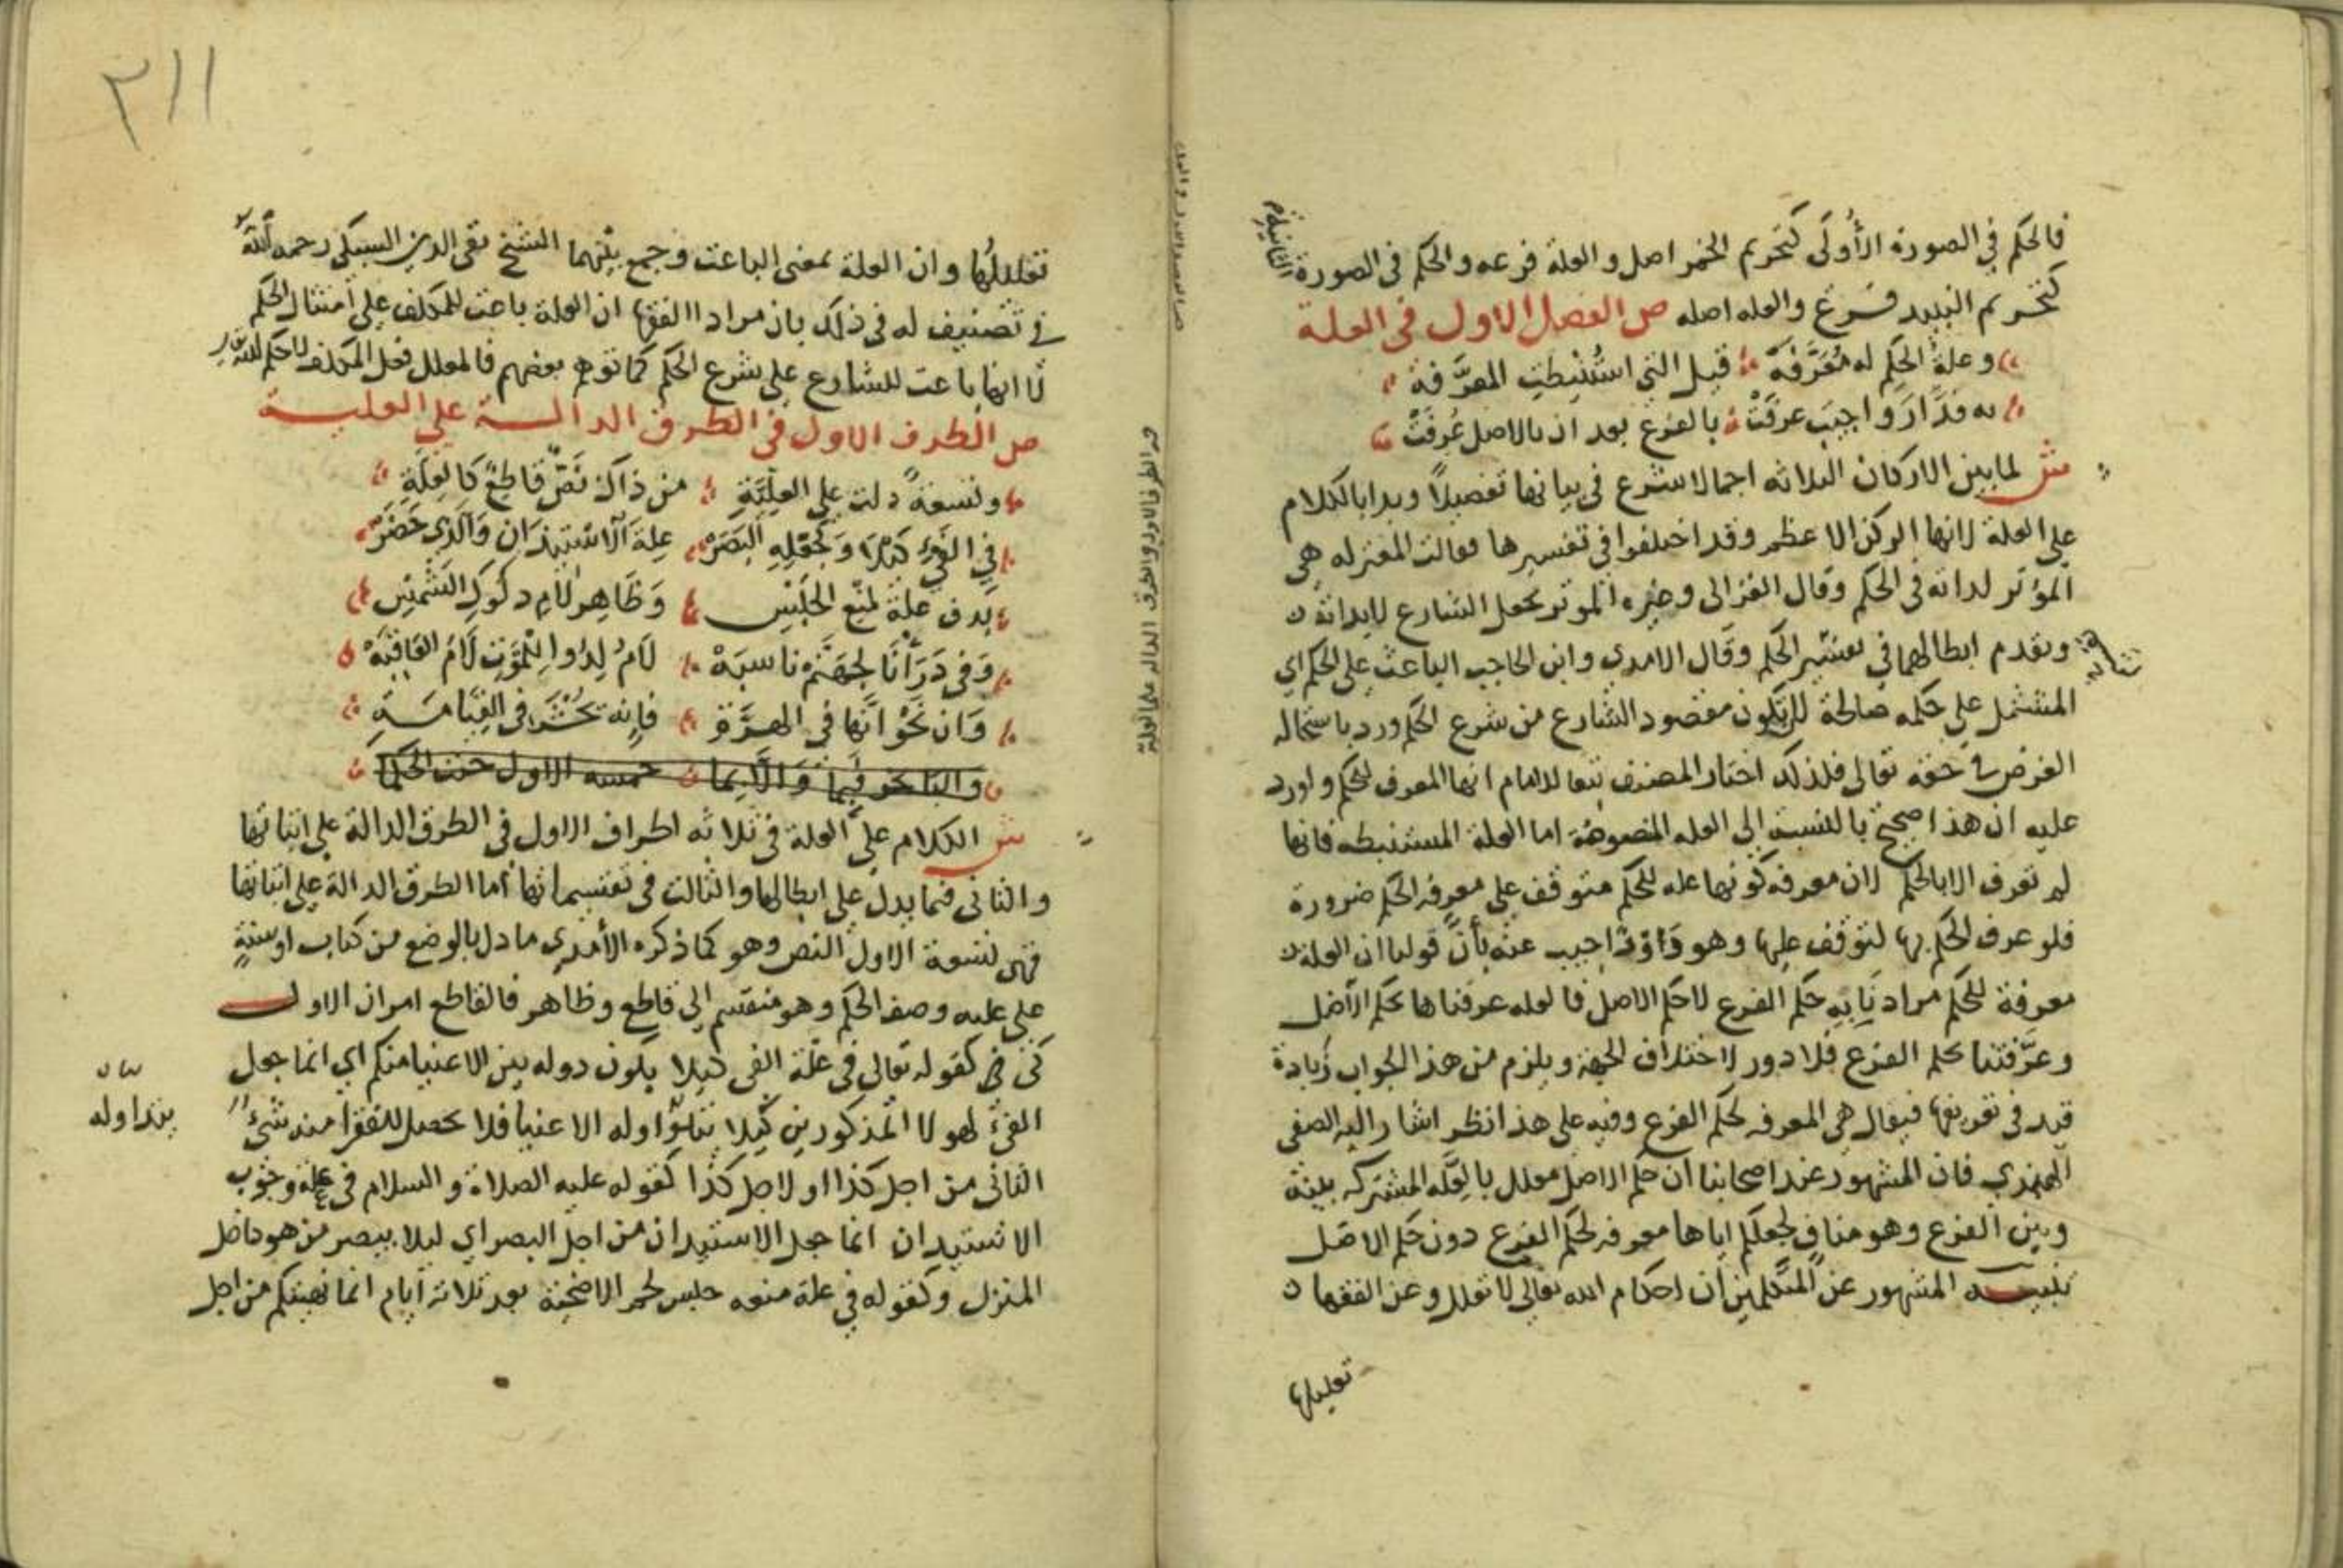 فالحكم في الصورة الأولى كتحريم الخمر اصل والعلة فرعه والحكم في الصورة الثانية
كتحريم النبيد فرع والعله اصله ص الفصل الاول في العلة
وعلة الحكم له معرفة قيل التي استنبطت المعرفة
به فدار واجيب عرفت بالفرع بعد ان بالاصل عرفت
ش لما بين الاركان الثلاثه اجمالا شرع في بيانها تفصيلا وبدا بالكلام
على العلة لانها الركن الاعظم وقد اختلفوا في تفسيرها فقالت المعتزله هي
المؤثر لداته في الحكم وقال الغزالى وغيره المؤثر بجعل الشارع لابداته
وتقدم ابطالهما في تفسير الحكم وقال الامدي وابن الحاجب الباعث على الحكم اي
المشتمل على حكمه صالحة لان تكون مقصود الشارع من شرع الحكم ورد باستحاله
الغرض في حقه تعالى فلذلك اختار المصنف تبعا للامام انها المعرف للحكم واورد
عليه ان هذا صحيح بالنسبة الى العله المنصوصة اما العلة المستنبطه فانها
لم تعرف الا بالحكم لان معرفه كونها عله للحكم متوقف على معرفه الحكم ضرورة
فلو عرف الحكم بها لتوقف عليها وهو دور اجيب عنه بأن قولنا ان العلة
معرفة للحكم مرادنا به حكم الفرع لا حكم الاصل فالعله عرفناها بحكم الاصل
وعرفتنا حكم الفرع فلا دور لاختلاف الجهة ويلزم من هذا الجواب زيادة
قيد في تعريفها فيقال هي المعرفه لحكم الفرع وفيه على هذا نظر اشار اليه الصفي
الهندي فان المشهور عند اصحابنا ان حكم الاصل معلل بالعله المشتركه بينه
وبين الفرع وهو مناف لجعلكم اياها معرفه لحكم الفرع دون حكم الاصل
تنبيه المشهور عن المتكلمين ان احكام الله تعالى لا تعلل وعن الفقها
تعليلها
٣١١
تعليلها وان العلة بمعنى الباعث وجمع بينهما الشيخ تقى الدين السبكى رحمه الله
في تصنيف له في ذلك بان مراد الفقها ان العلة باعث للمكلف على امتثال الحكم
لا انها باعت للشارع على شرع الحكم كما توهم بعضهم فالمعلل فعل المكلف لا حكم الله
ص الطرف الاول في الطرف الدالة على العلية
وتسعة دلت على العلية من ذاك نص قاطع كالعلة
في الفيء كيلا وكجعله البصر علة الاستيذان والذي حضر
بدف علة لمنع الحبس وظاهر لام دلوك الشمس
وفي ذرأنا لجهنم ناسبه لام لدوا للموت لام العاقبه
وان نحو انها في الهرة فانه يحشر في القيامة
والبا نحو فبما والايما خمسه الاول
ش الكلام على العلة في ثلاثه اطراف الاول في الطرق الدالة على اثباتها
والثانى فيما يدل على ابطالها والثالث في تقسيماتها أما الطرق الدالة على اثباتها
فهى تسعة الاول النص وهو كما ذكره الأمدي ما دل بالوضع من كتاب او سنة
على عليه وصف الحكم وهو منقسم الى قاطع وظاهر فالقاطع امران الاول
كى كقوله تعالى في علة الفي كيلا يكون دوله بين الاغنيا منكم اي انما جعل
الفيء لهولا المذكورين كيلا يتداوله الاغنيا فلا يحصل للفقرا منه شيء
بيان
يتداوله
الثانى من اجل كذا او لاجل كذا كقوله عليه الصلاة والسلام في علة وجوب
الاستيدان انما جعل الاستيدان من اجل البصر اي ليلا يبصر من هو داخل
المنزل وكقوله في علة منعه حبس لحم الاضحية بعد ثلاثة أيام انما نهيتكم من اجل